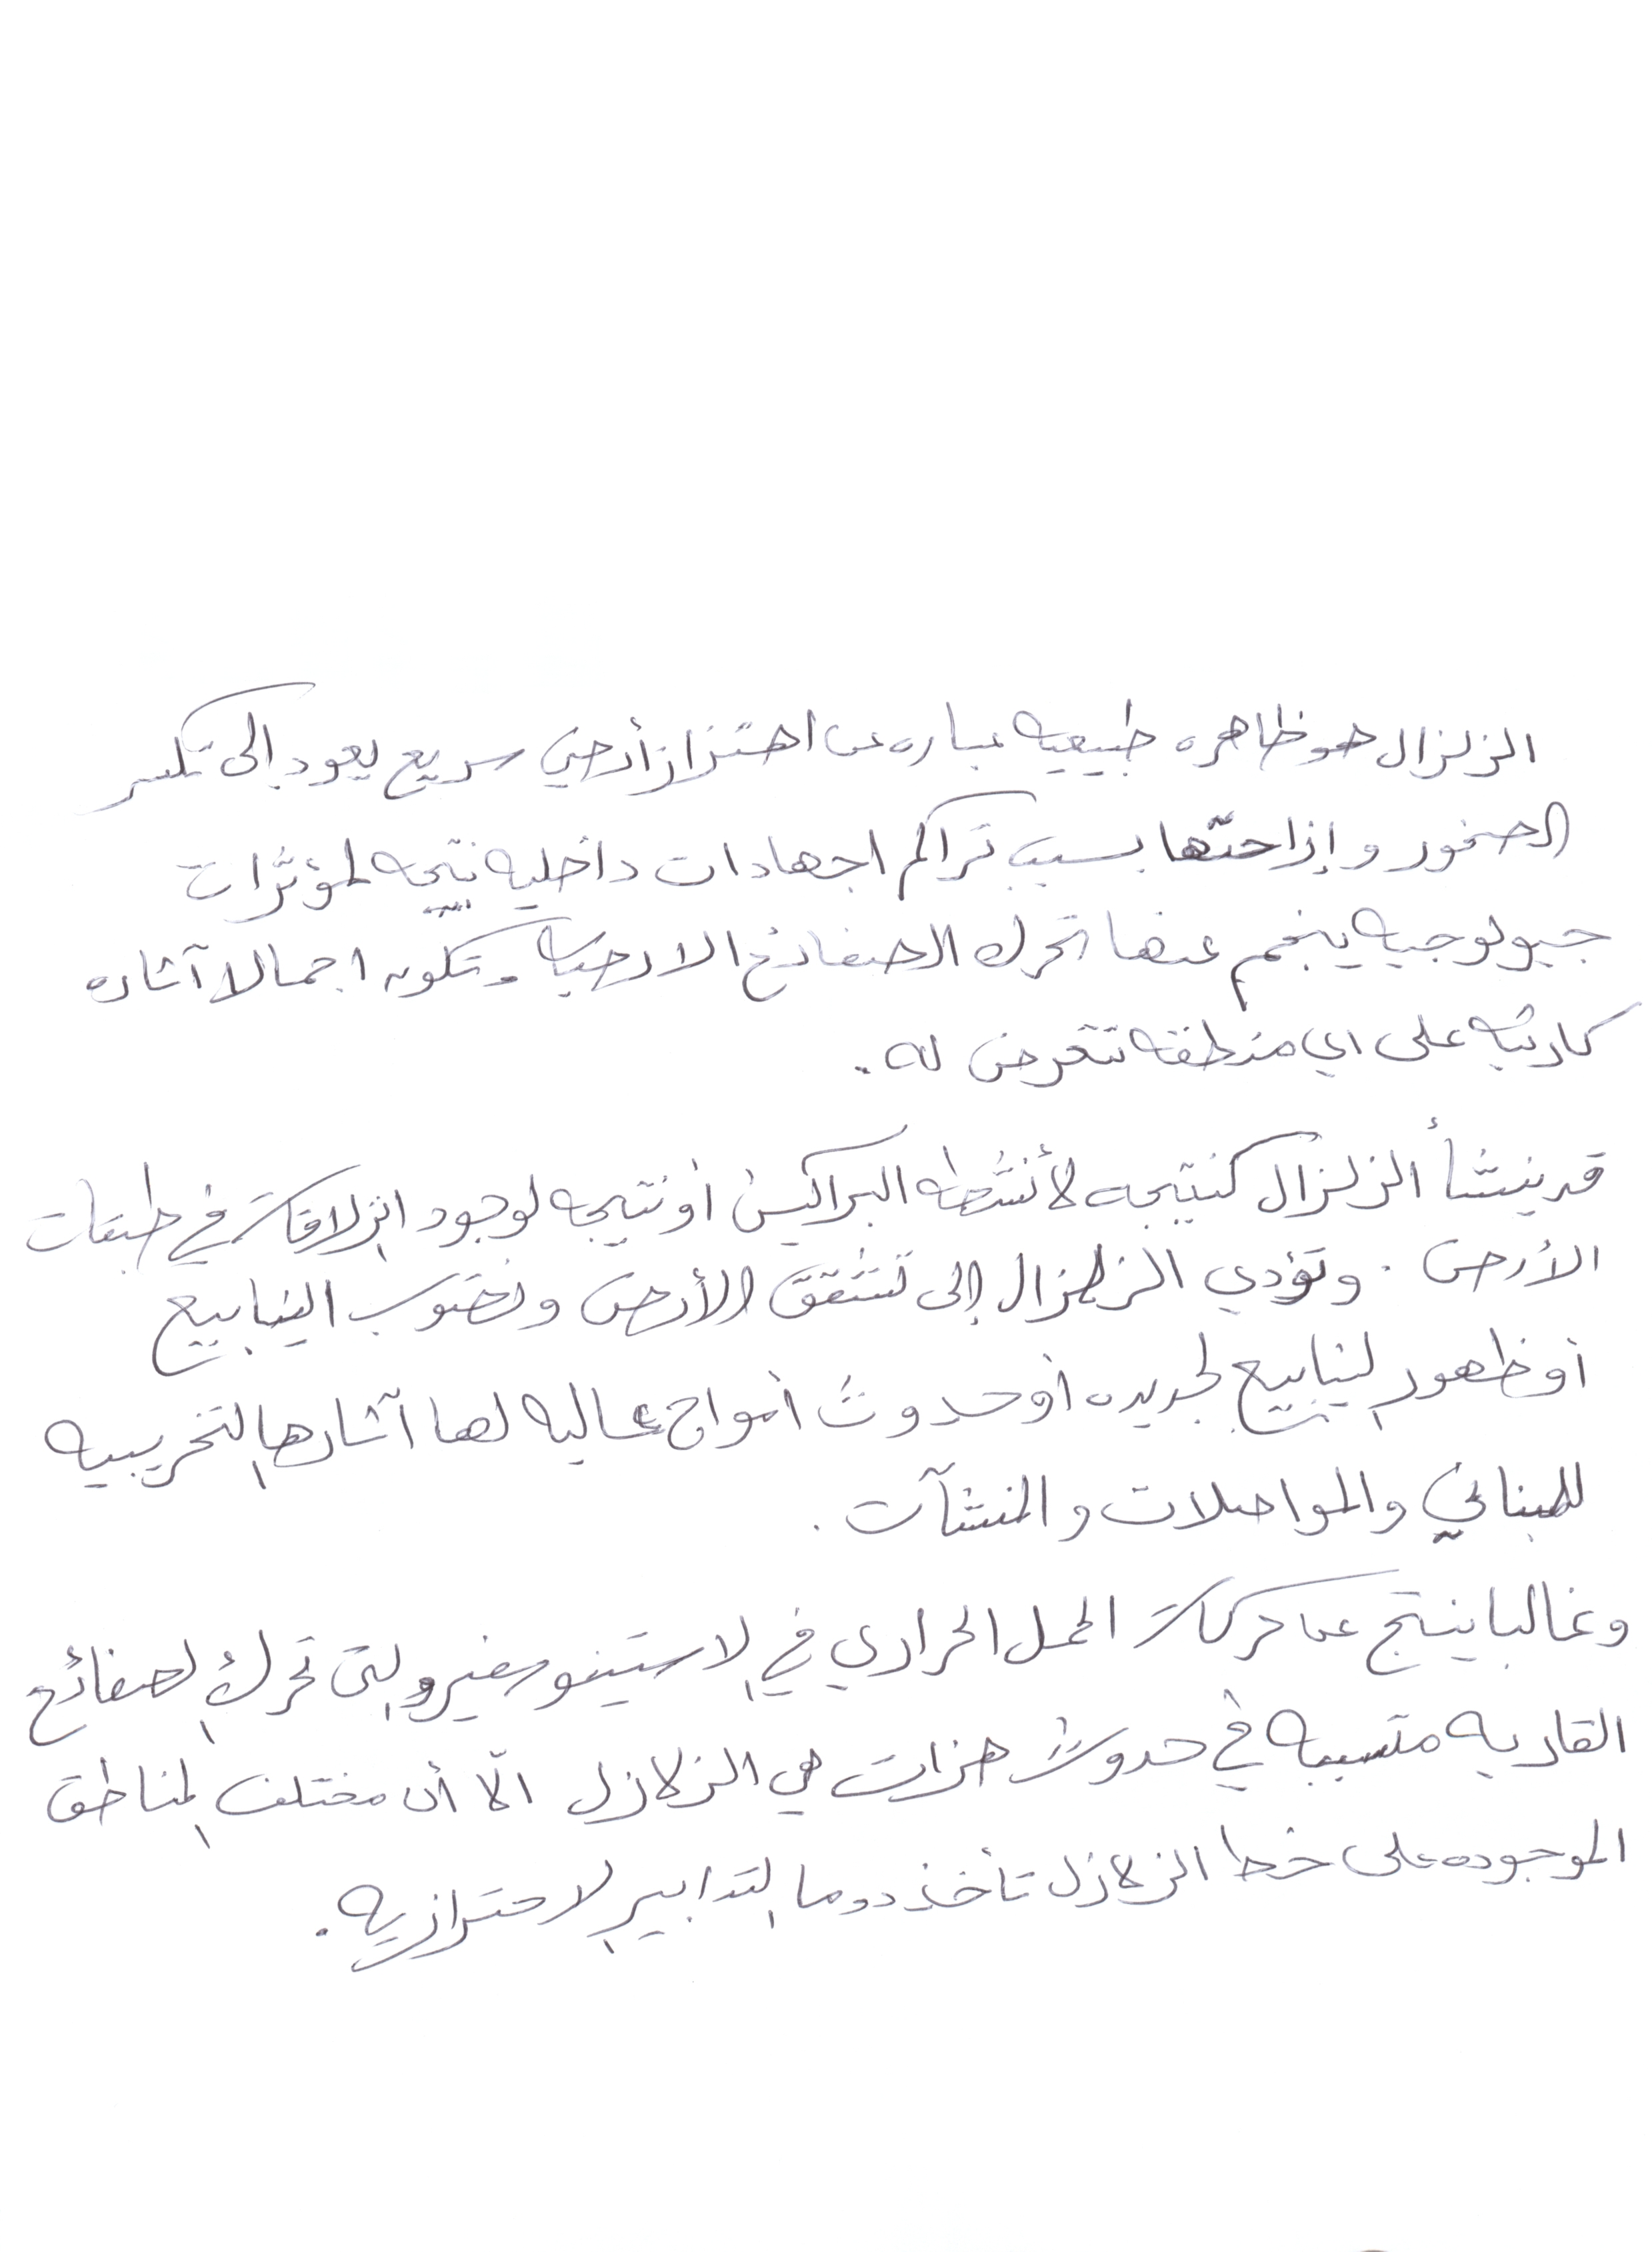 الزلزال هو ظاهره طبيعيه عباره عن اهتزاز أرضي سريع يعود إلى تكسر
الصخور وإزاحتها بسبب تراكم اجهادات داخليه نتيجه لمؤثرات
جيولوجيه ينجم عنها تحرك الصفائح الارضيه وتكون اجمالا آثاره
كارثيه على اي منطقه تتعرض له .
قد ينشأ الزلزال كنتيجه لأنشطه البراكين أو نتيجه لوجود انزلاقات في طبقات
الأرض . وتؤدي الزلازل إلى تشقق الأرض ونضوب الينابيع
أو ظهور الينابيع الجديده أو حدوث أمواج عاليه لها آثارها التخريبيه
للمباني والمواصلات والمنشآت .
وغالبا ينتج عن حركات الحمل الحراري في الاستينوسفير والتي تحرك الصفائح
القاريه متسببه في حدوث هزات هي الزلازل الّا أن مختلف المناطق
الموجوده على خط الزلازل تأخذ دوما التدابير الاحترازيه .